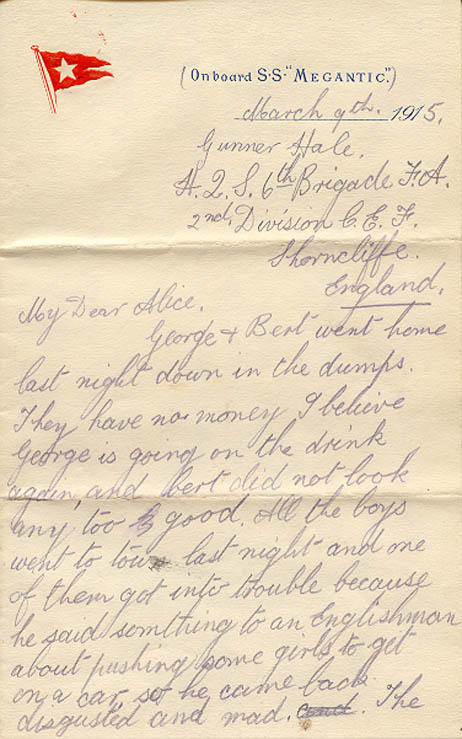 (On board S·S·"MEGANTIC".)
March 9th. 1915.
Gunner Hale.
H. Q. S. 6th Brigade F. A.
2nd. Division C. E. F.
Shorncliffe.
England.
My Dear Alice.
George & Bert went home
last night down in the dumps.
They have no money I believe
George is going on the drink
again, and bert did not look
any too good. All the boys
went to town last night and one
of them got into trouble because
he said somthing to an Englishman
about pushing some girls to get
on a car, so he came back
disgusted and mad. and. The